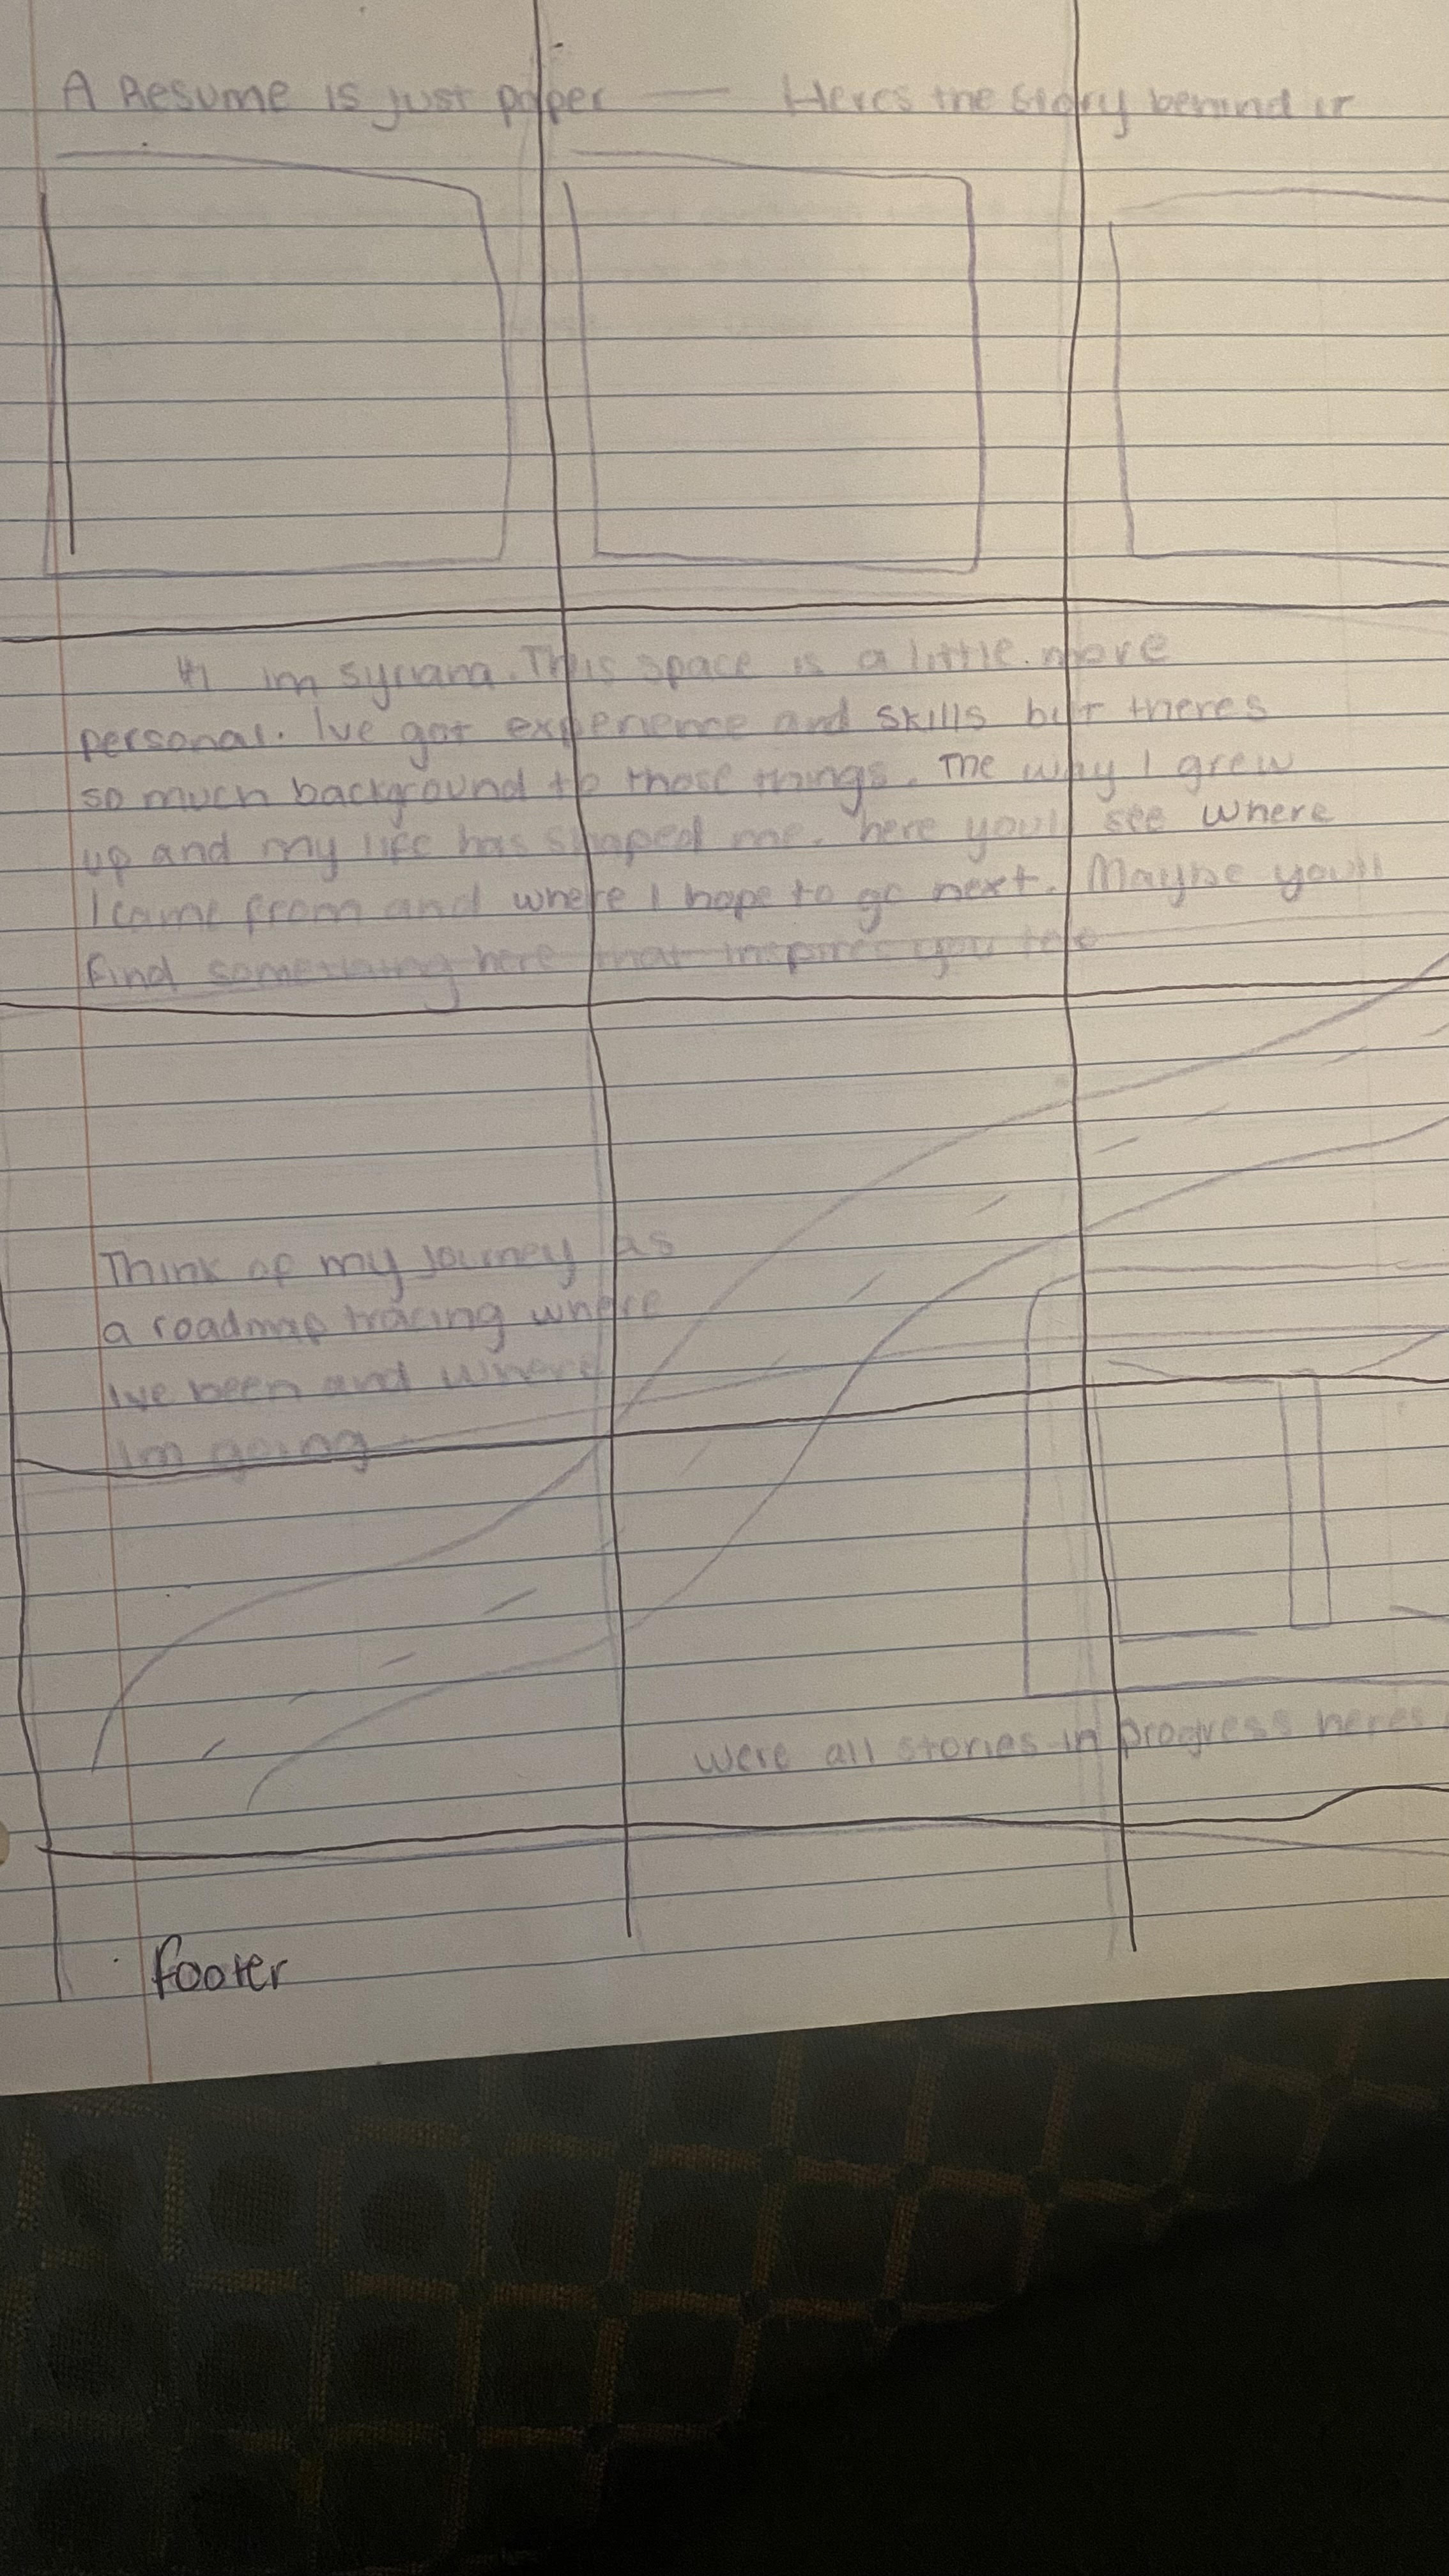 A Resume is just paper — Heres the story behind it
Hi im Syriana. This space is a little more
personal. Ive got experience and skills but theres
so much background to those things. The way I grew
up and my life has shaped me. here youll see where
I came from and where I hope to go next. Maybe you'll
find something here that inspires you too
Think of my journey as
a roadmap tracing where
Ive been and where
im going
were all stories in progress heres
footer